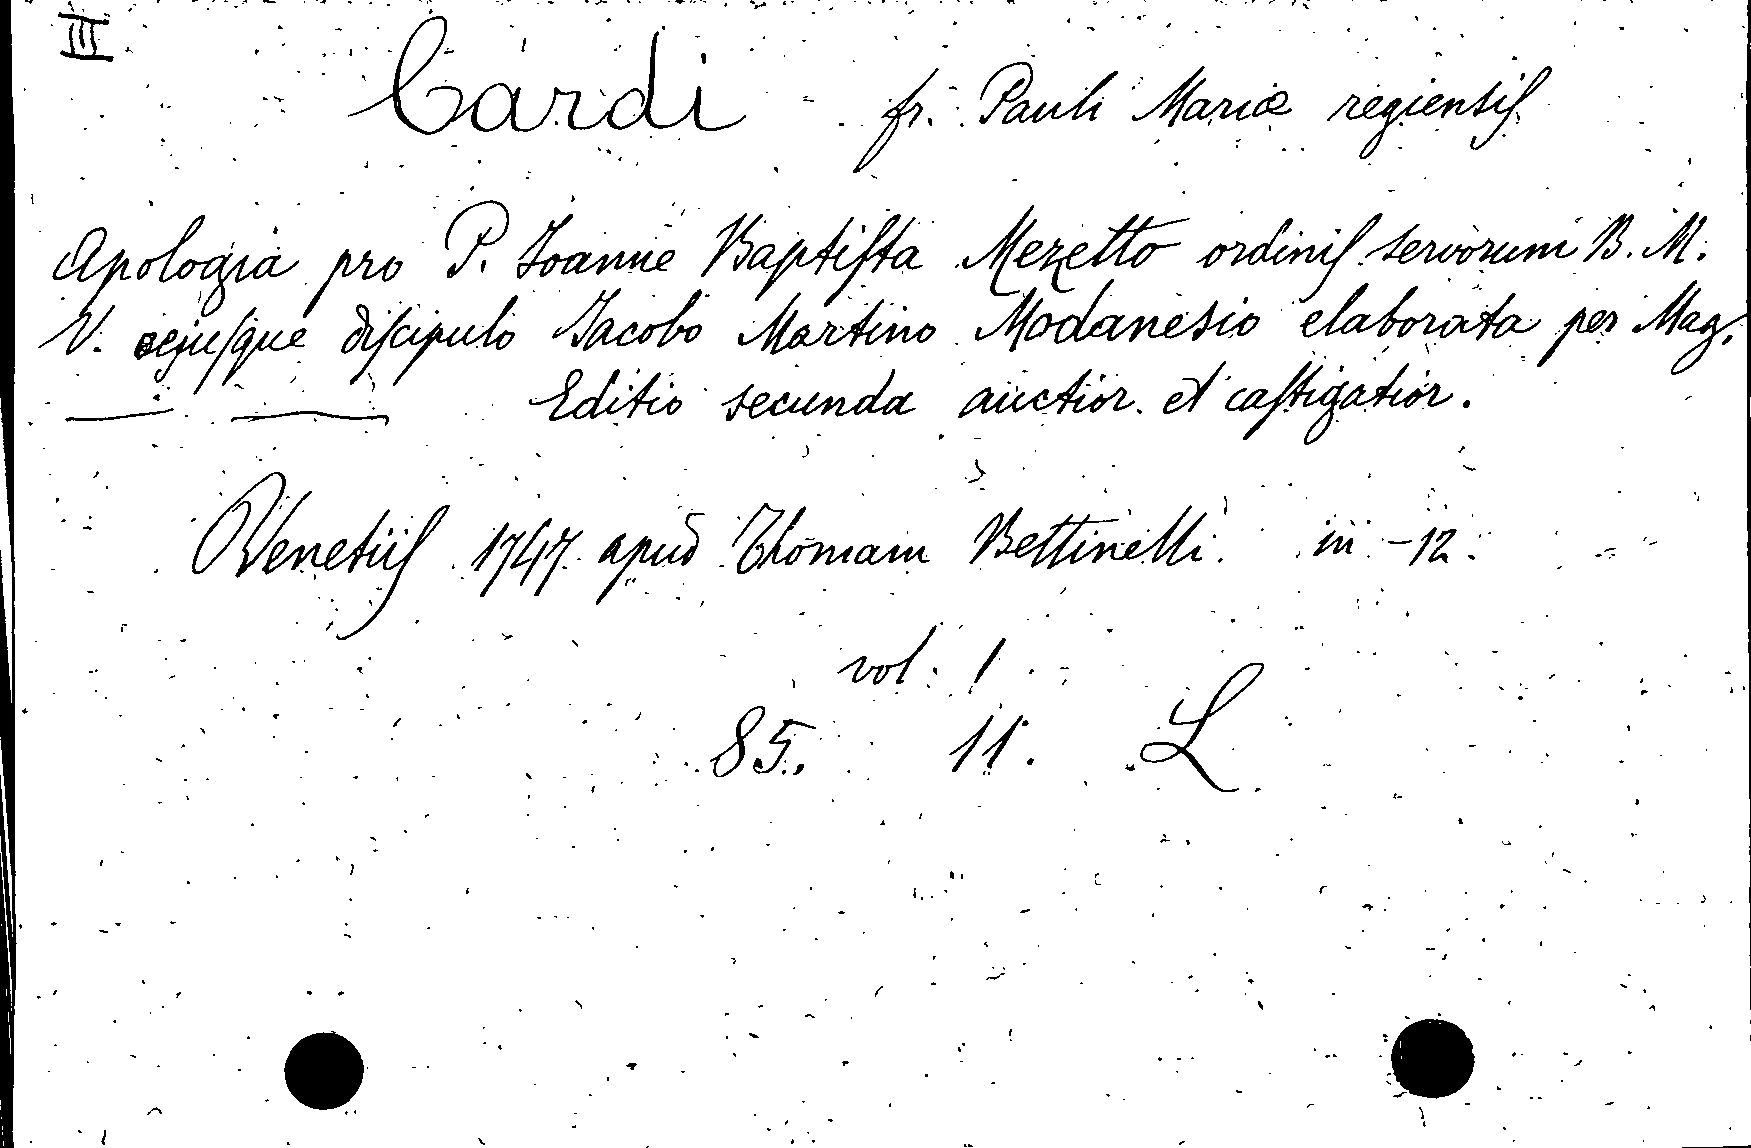 III
Cardi fr. Pauli Mariæ regiensiſ
Apologia pro P. Joanne Baptiſta Mezetto ordiniſ servorum B. M.
V. ejuſque diſcipulo Jacobo Martino Modanesio elaborata per Mag.
— — Editio secunda auctior et caſtigatior.
Venetiiſ 1747 apud Thomam Bettinelli in-12.
vol. 1
85. 11. L